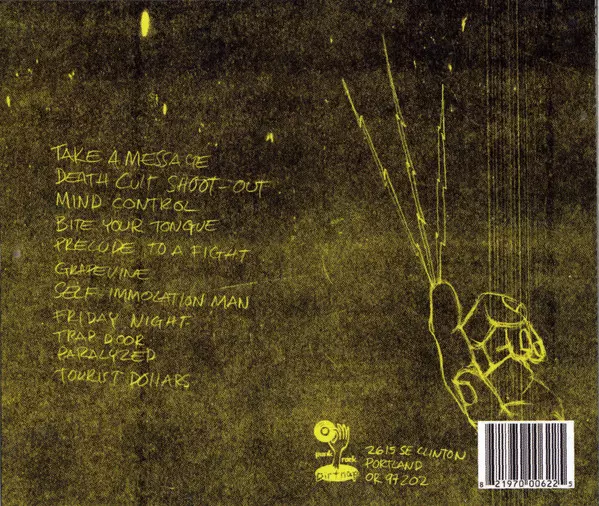 TAKE A MESSAGE
DEATH CULT SHOOT-OUT
MIND CONTROL
BITE YOUR TONGUE
PRELUDE TO A FIGHT
GRAPEVINE
SELF IMMOLATION MAN
FRIDAY NIGHT
TRAP DOOR
PARALYZED
TOURIST DOLLARS
punk rock
Dirtnap
2615 SE CLINTON
PORTLAND
OR 97202
8 21970 00622 5